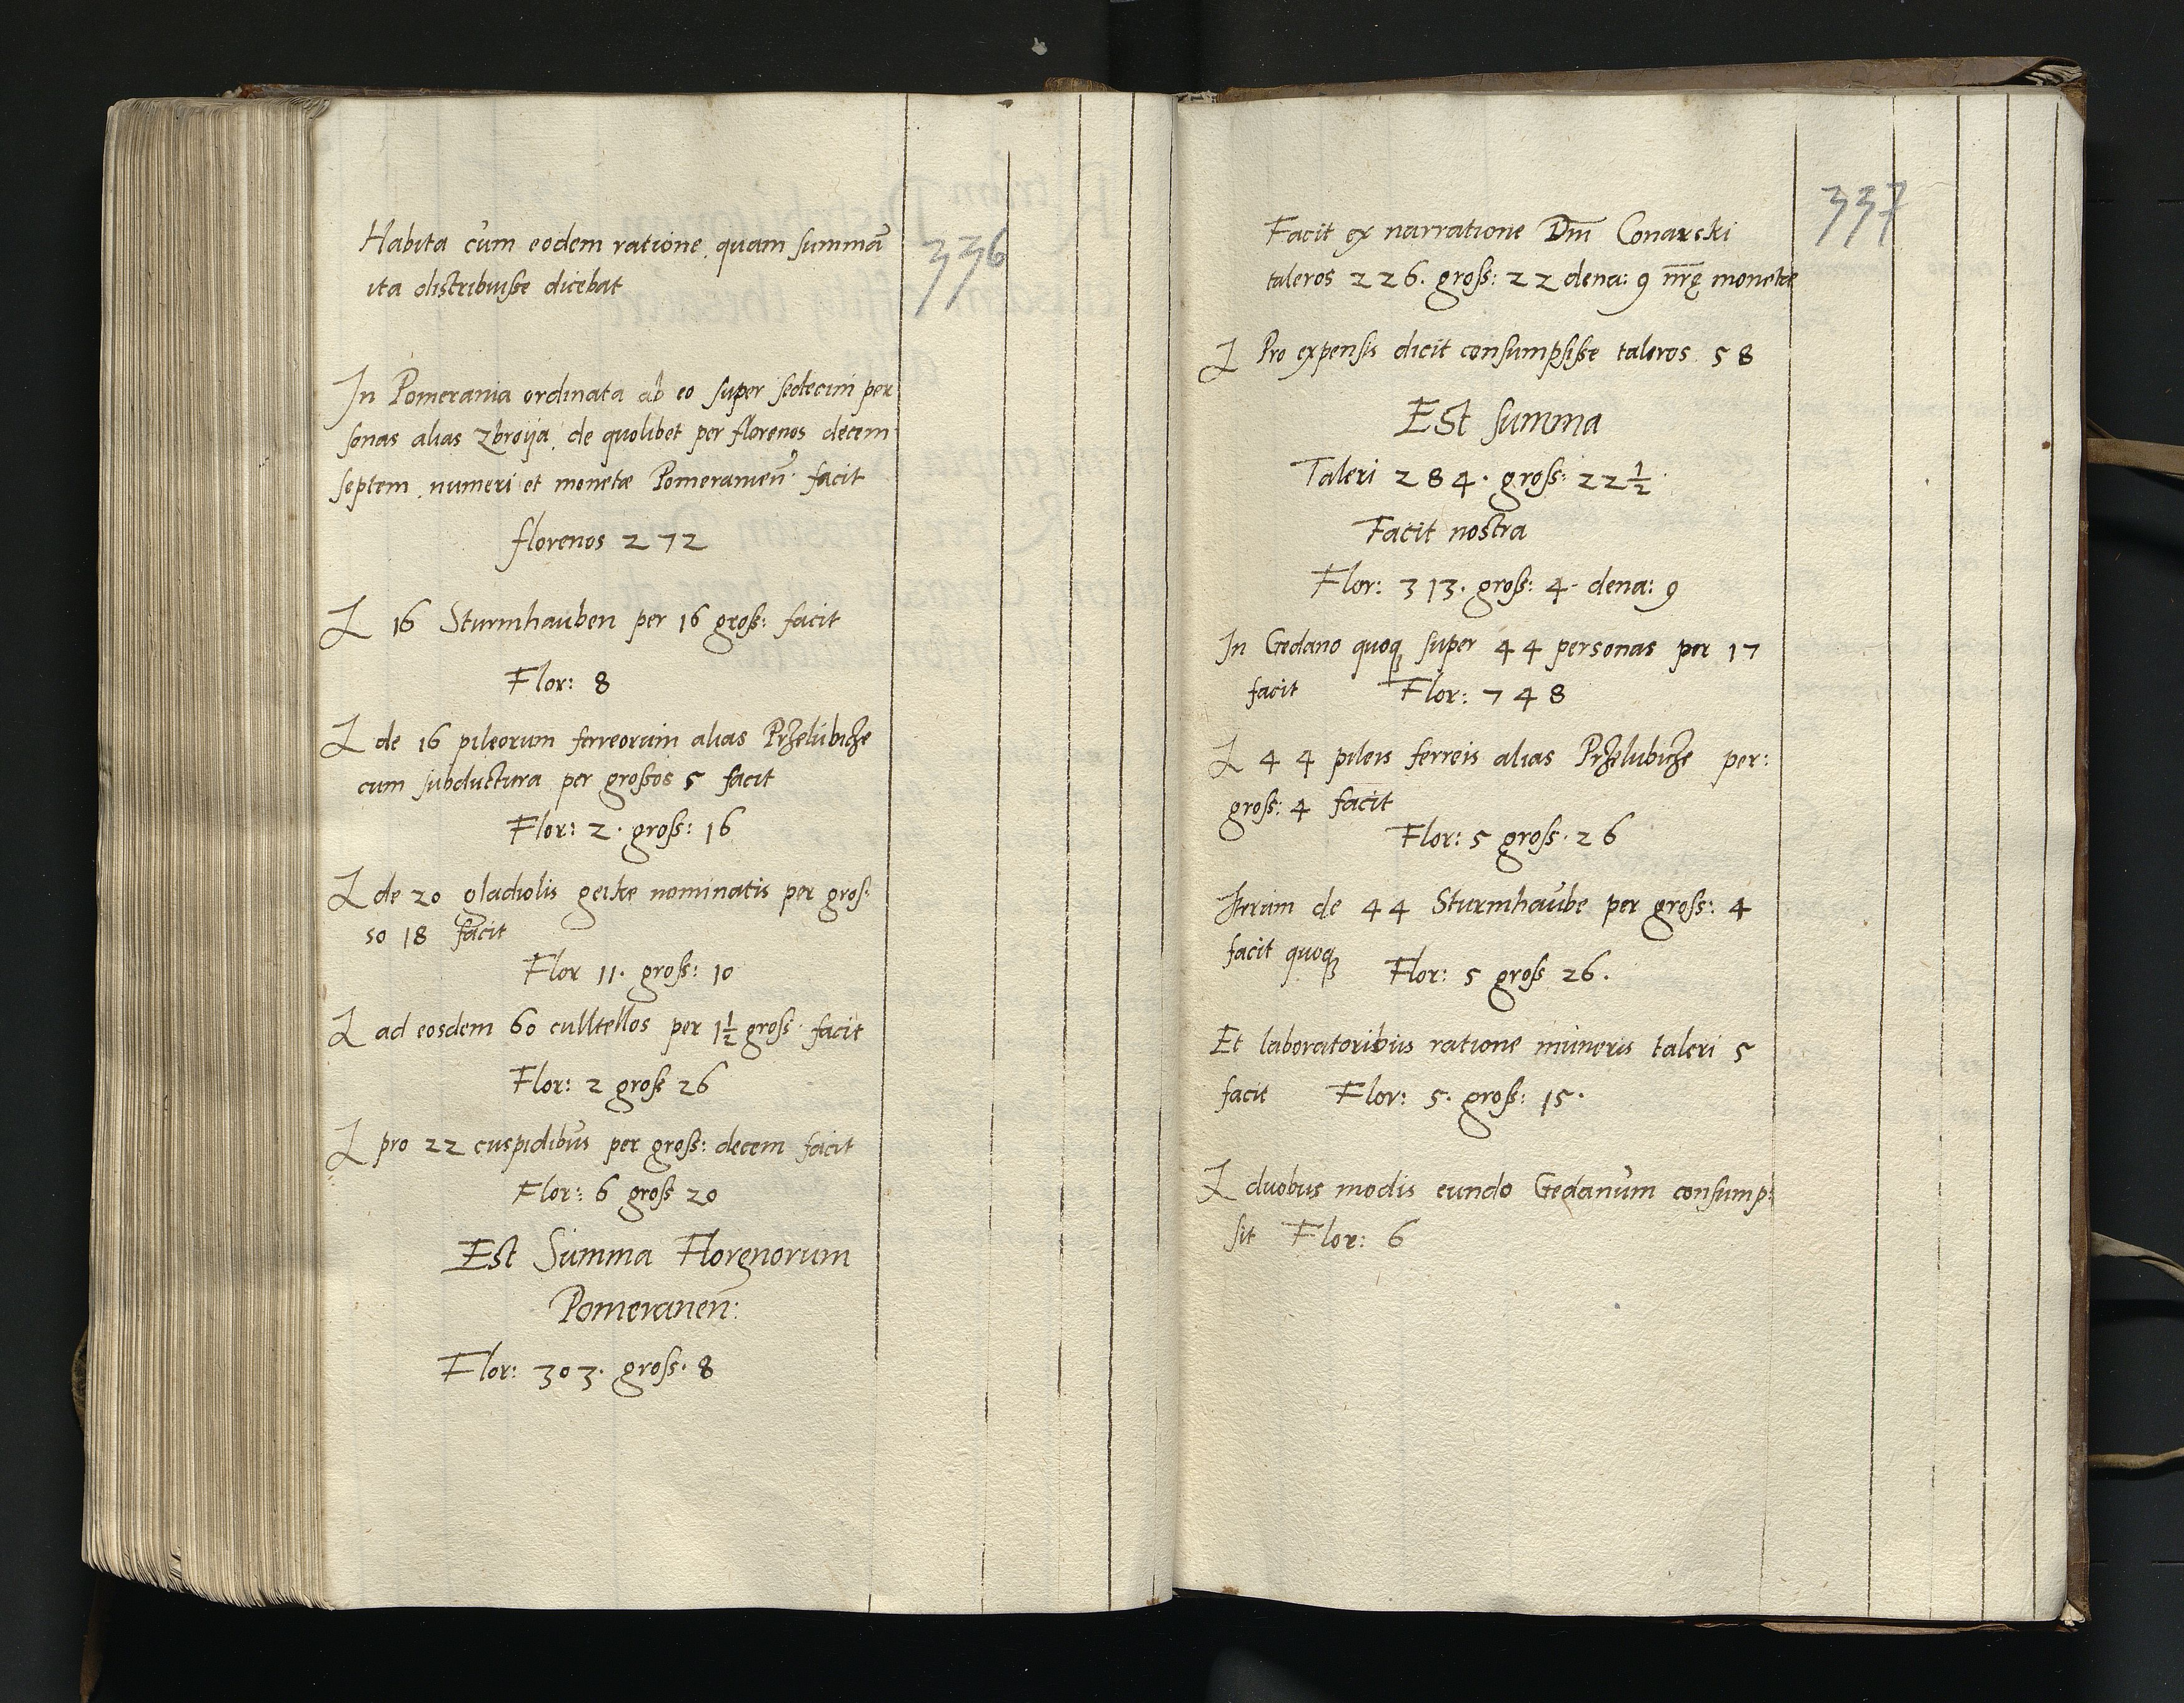 336
Habita cum eodem ratione, quam summā
ita distribuisse dicebat
In Pomerania ordinata ab eo super sedecim per
sonas alias zbroija, de quolibet per florenos decem
septem, numeri et monetæ Pomeranien̄ facit
florenos 272
16 Sturmhauben per 16 gross: facit
Flor: 8
de 16 pileorum ferreorum alias Przelubicze
cum subductura per grossos 5 facit
Flor: 2. gross: 16
de 20 gladiolis geikæ nominatis per gros:
so 18 facit
Flor 11. gross: 10
ad eosdem 60 culltellos per 1½ gross. facit
Flor: 2 gross 26
pro 22 cuspidibus per gross: decem facit
Flor: 6 gross 20
Est Summa Florenorum
Pomeranen̄:
Flor: 303. gross. 8
337
Facit ex narratione Dm̄ Conarski
taleros 226. gross: 22 dena: 9 nr̄ę monetæ
Pro expensis dicit consumpsisse taleros 58
Est summa
Taleri 284. gross: 22½
Facit nostra
Flor: 313. gross: 4. dena: 9
In Gedano quoq super 44 personas per 17
facit Flor: 748
44 pileis ferreis alias Przelubicze per:
gross: 4 facit
Flor: 5 gross. 26
Iterum de 44 Sturmhaube per gross: 4
facit quoq
Flor: 5 gross 26.
Et laboratoribus ratione muneris taleri 5
facit Flor: 5. gross: 15.
duobus modis eundo Gedanum consump:
sit Flor: 6